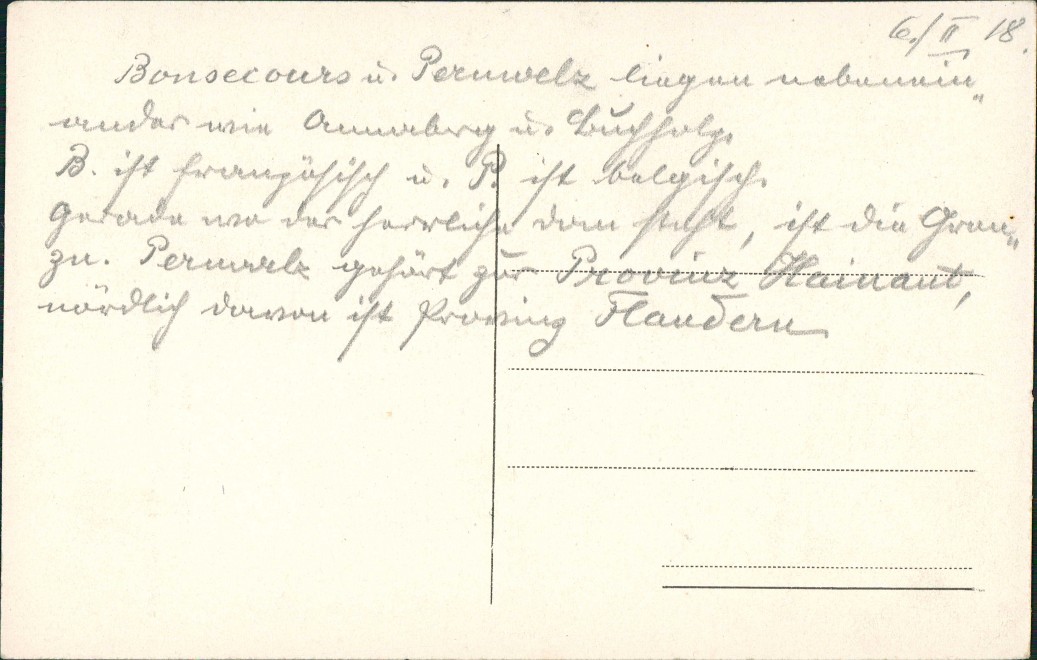 6./II 18.
Bonsecours u. Peruwelz liegen nebenein„
ander wie Annaberg u. Buchholz.
B. ist französisch u. P. ist belgisch.
Gerade wo der herrliche Dom steht, ist die Gren„
ze. Peruwelz gehört zur Provinz Hainaut,
nördlich davon ist Provinz Flandern